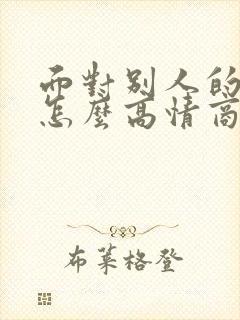 而對別人的
怎麼高情商
布萊格登